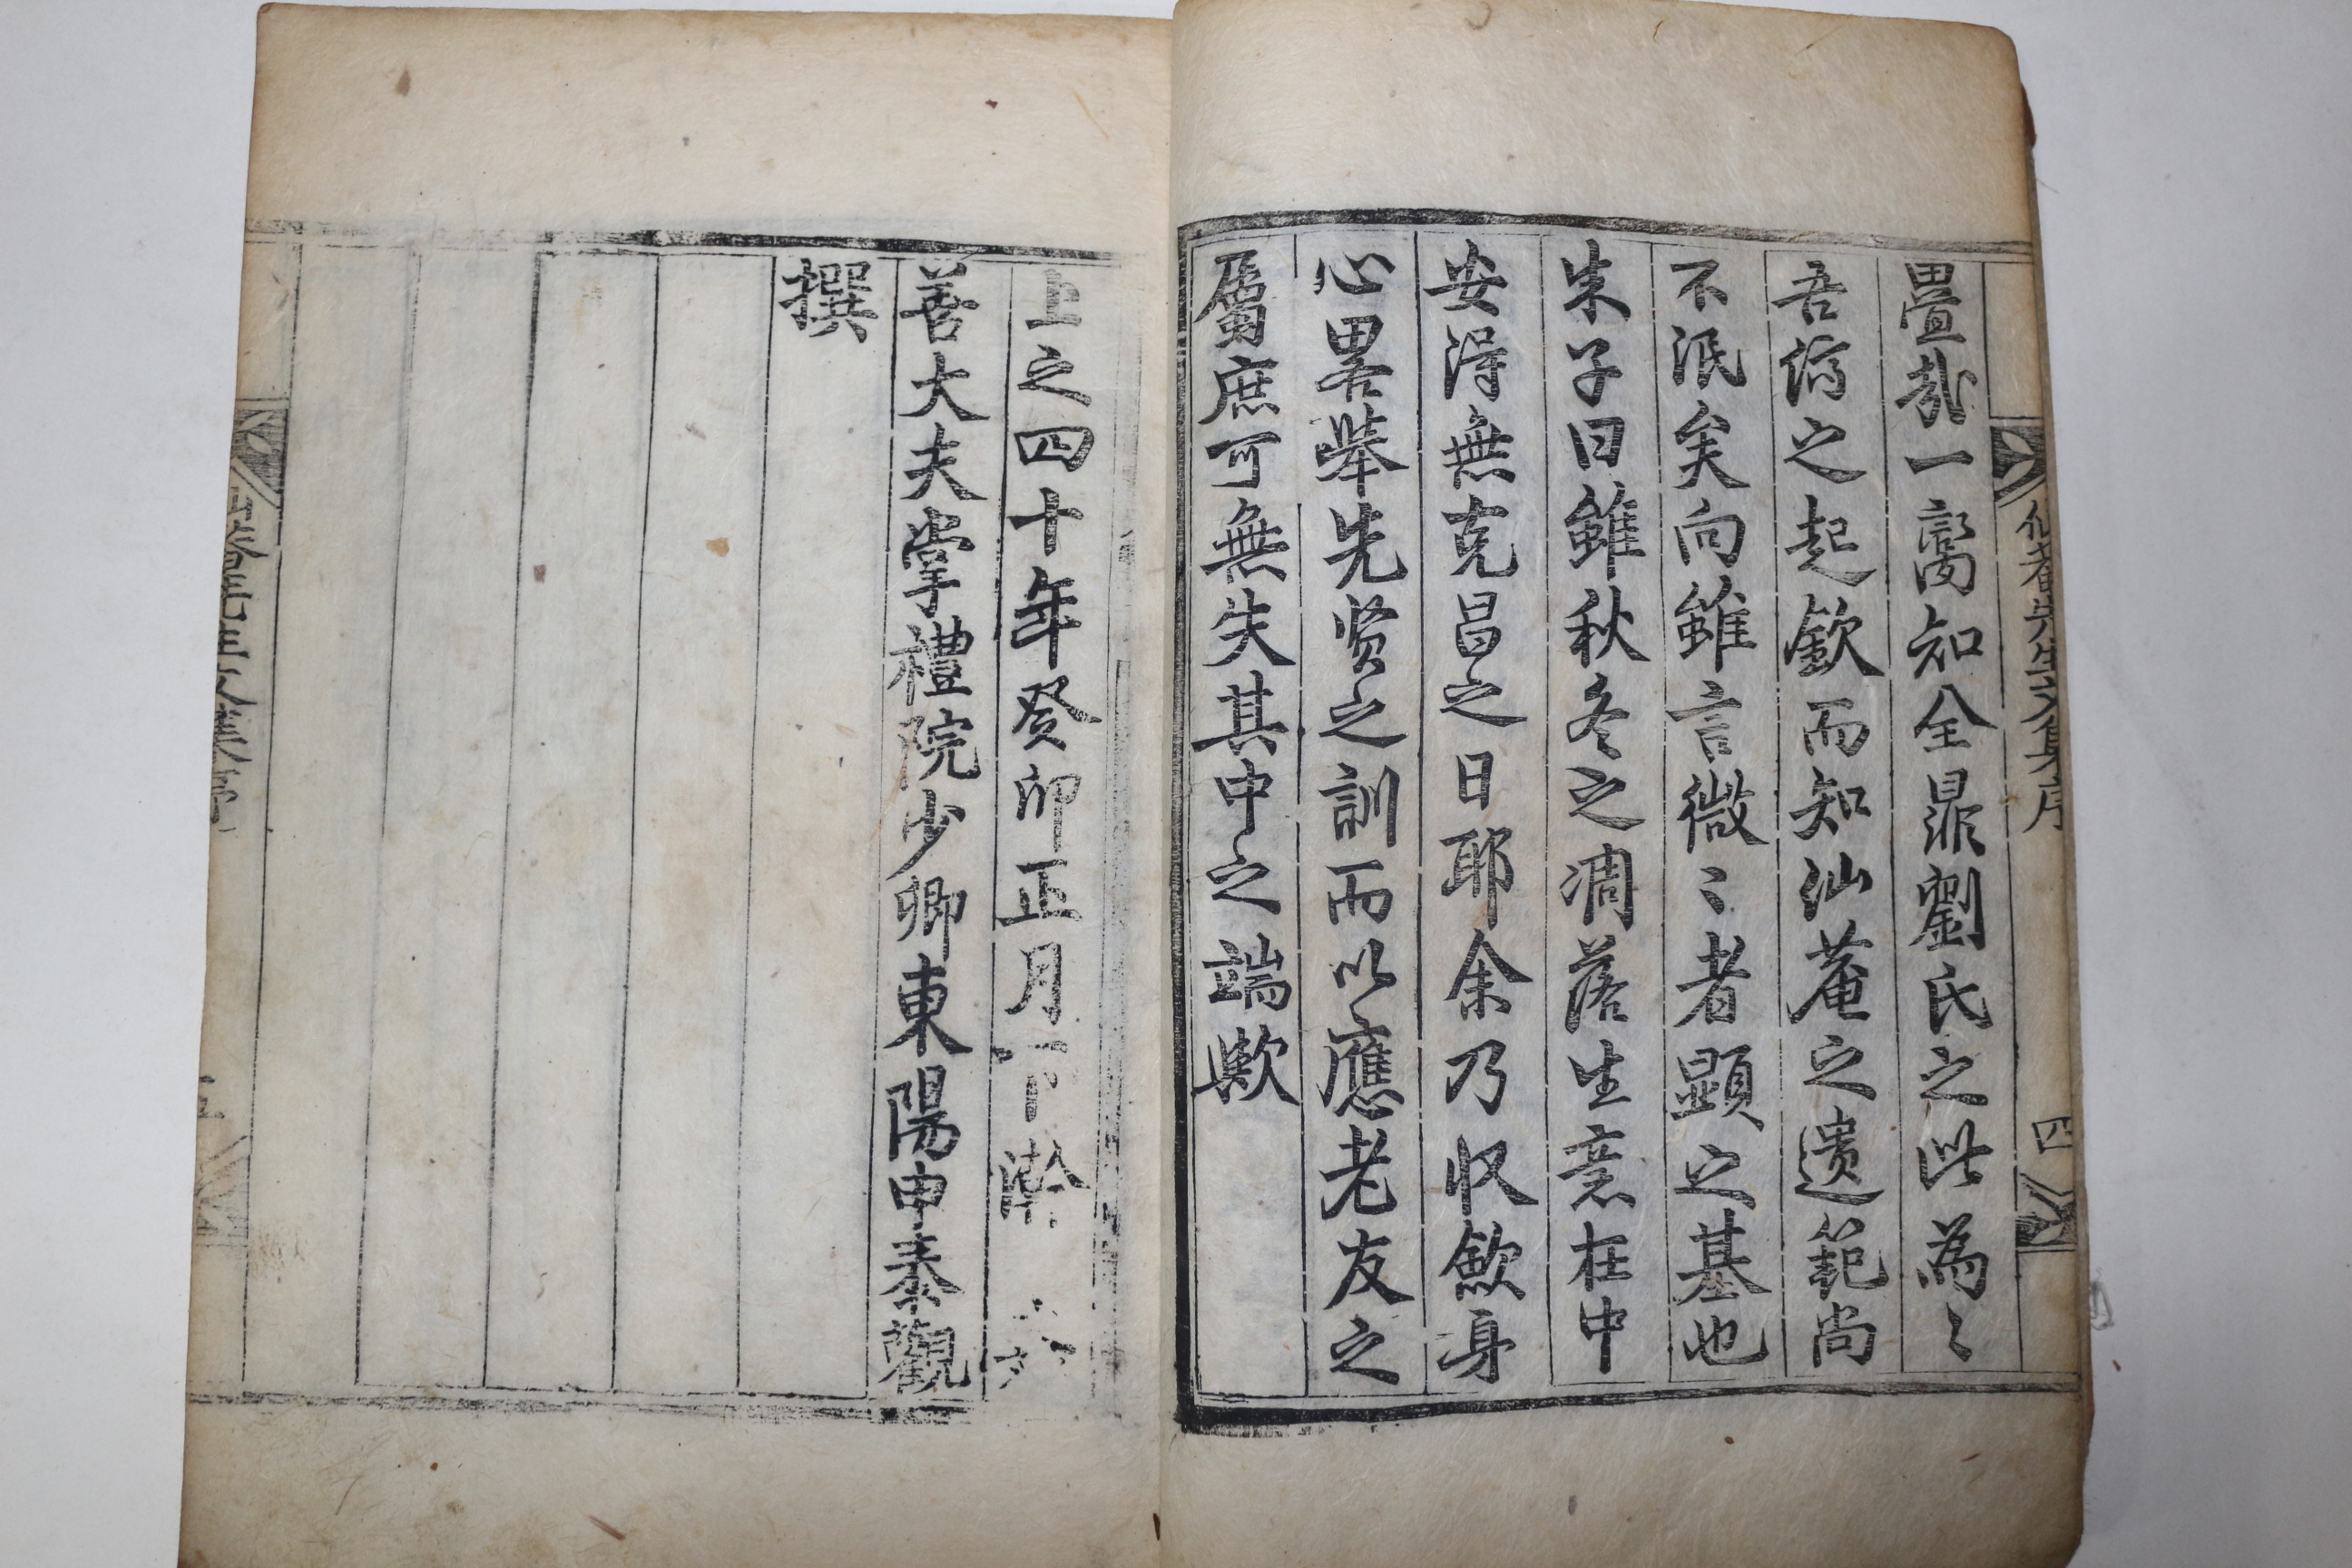 汕菴先生文集序 四
疊哉一臠知全鼎劉氏之此為〻
吾儕之起欽而知汕菴之遺範尚
不泯矣向雖言微〻者顯之基也
朱子曰雖秋冬之凋落生意在中
安得無克昌之日耶余乃收斂身
心畧舉先賢之訓而以應老友之
屬庶可無失其中之端歟
上之四十年癸卯正月下澣
善大夫掌禮院少卿東陽申泰觀
撰